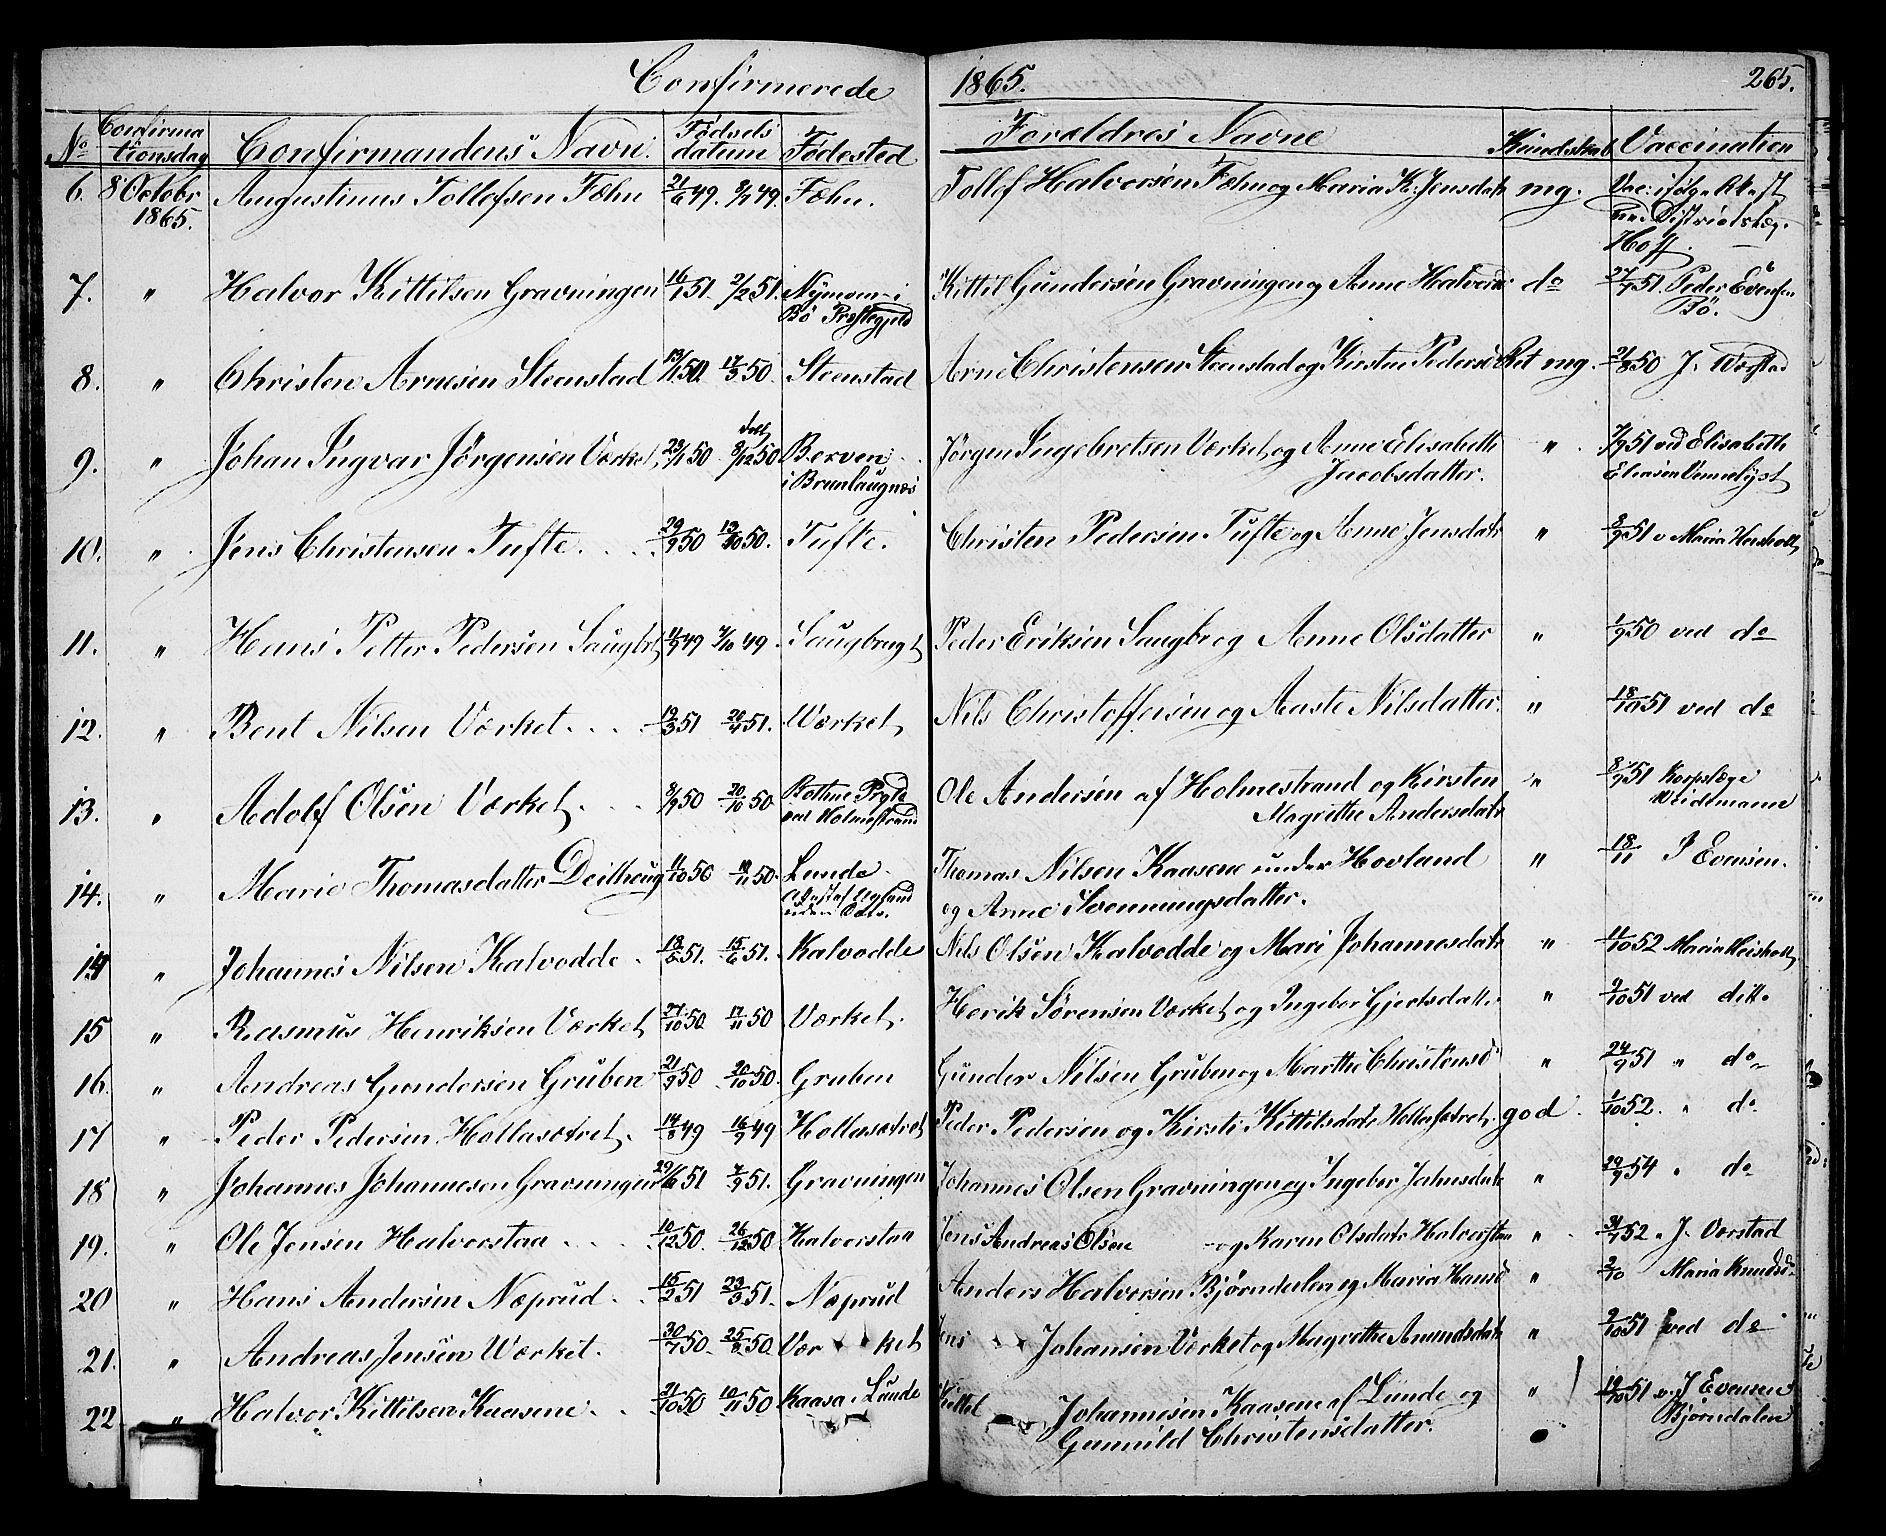 Confirmerede 1865. 265.
No Confirmationsdag Confirmandens Navn. Fødselsdatum Fødested Forældres Navne Kundskab Vaccination
6. 8 Octobr 1865. Augustinus Tollefsen Fæhn 21/6 49. 8/7 49. Fæhn. Tollef Halvorsen Fæhn og Maria K. Jensdatr mg. Vac: ifølge
Districtslæg.
Hoff.
7. " Halvor Kittilsen Gravningen 16/1 51. 2/2 51. Nymoen i Kittil Gundersen Gravningen og Anne Halvorsd do 27/7 51. Peder Evensen
Bø Præstegjeld Bø.
8. " Christen Arnesen Steenstad 13/1 50. 17/3 50. Steenstad Arne Christensen Steenstad og Kirsten Pedersd Ret mg. 21/8 50 J. Vorstad
9. " Johan Ingvar Jørgensen Værket, 23/1 50 8/12 50 Berven Jørgen Ingebretsen Værket og Anne Elisabeth " 7/9 51 ved Elisabeth
i Brunlaugnæs Jacobsdatter. Eliasen Vennelyst
10. " Jens Christensen Tufte. 29/9 50 13/10 50. Tufte. Christen Pedersen Tufte og Anne Jensdatr " 8/9 51 v Maria Hersholt,
11. " Hans Petter Pedersen Saugbr 11/9 49 7/10 49. Saugbrugt Peder Eriksen Saugbr og Anne Olsdatter " 1/9 50 ved do
12. " Bent Nilsen Værket. 19/3 51 20/4 51. Værket, Nils Christoffersen og Aaste Nilsdatter. " 18/10 51 ved do
13. " Adolf Olsen Værket. 8/9 50 20/10 50. Bothne Prgld Ole Andersen af Holmestrand og Kirsten " 8/9 51 Korpslæge
ved Holmestrand Magrethe Andersdatr Weidemann
14. " Marie Thomasdatter Deilhoug 11/10 50 10/11 50. Lunde Thomas Nilsen Kaasene under Hovland " 18/11 J Evensen.
og Anne Svenningsdatter.
14 " Johannes Nilsen Kalvodde. 13/5 51. 15/6 51. Kalvodde Nils Olsen Kalvodde og Mari Johannesdatr " 11/10 52 Maria Hersholt,
15 " Rasmus Henriksen Værket 27/10 50. 17/11 50 Værket. Henrik Sørensen Værket og Ingebor Gjertsdatter " 9/10 51 ved ditto
16. " Andreas Gundersen Gruben 21/9 50 20/10 50. Gruben Gunder Nilsen Gruben og Marthe Christensd " 24/9 51 " do
17 " Peder Pedersen Hollasætret. 14/8 49 16/9 49 Hollasætret Peder Pedersen og Kirsti Kittilsdatr Hollasætret, god. 1/10 52. " do
18 " Johannes Johannesen Gravningen 29/6 51 7/9 51. Gravningen Johannes Olsen Gravningen og Ingebor Jahnsdatr " 29/9 54 " do
19. " Ole Jensen Halvorstaa 10/12 50. 26/12 50 Halvorstaa Jens Andreas Olsen og Karen Olsdatr Halvorstaa " 31/7 52 " J. Vorstad
20 " Hans Andersen Næprud. 15/2 51 23/3 51. Næprud Anders Halvorsen Bjørndalen og Maria Hansd " 2/10 Maria Knudsd
21. " Andreas Jensen Værket. 30/7 50. 25/8 50. Værket Jens Johansen Værket og Magrethe Amundsdatr " 9/10 51 ved do
22 " Halvor Kittilsen Kaasene. 21/10 50 10/11 50 Kaasa i Lunde Kittel Johannesen Kaasene af Lunde og " 19/10 51 v. J Evensen
Gunnild Christensdatter. Bjørndalen